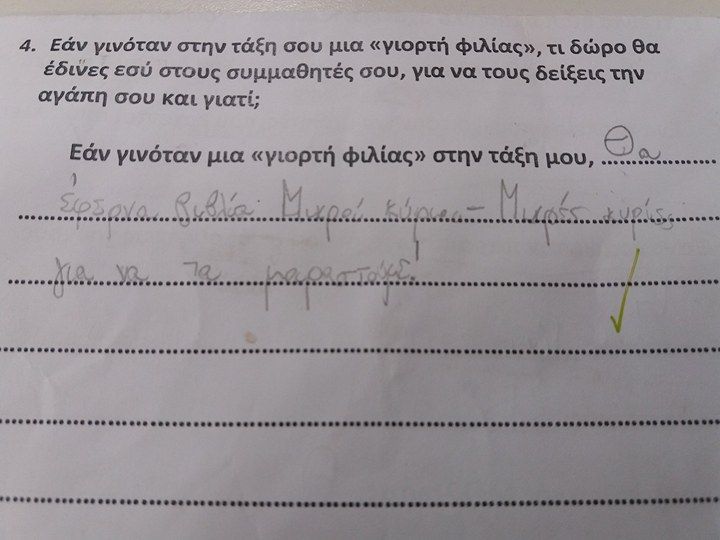 4. Εάν γινόταν στην τάξη σου μια «γιορτή φιλίας», τι δώρο θα
έδινες εσύ στους συμμαθητές σου, για να τους δείξεις την
αγάπη σου και γιατί;
Εάν γινόταν μια «γιορτή φιλίας» στην τάξη μου, Θα
έφερνα βιβλία Μικροί κύριοι - Μικρές κυρίες
για να τα μοιραστούμε!